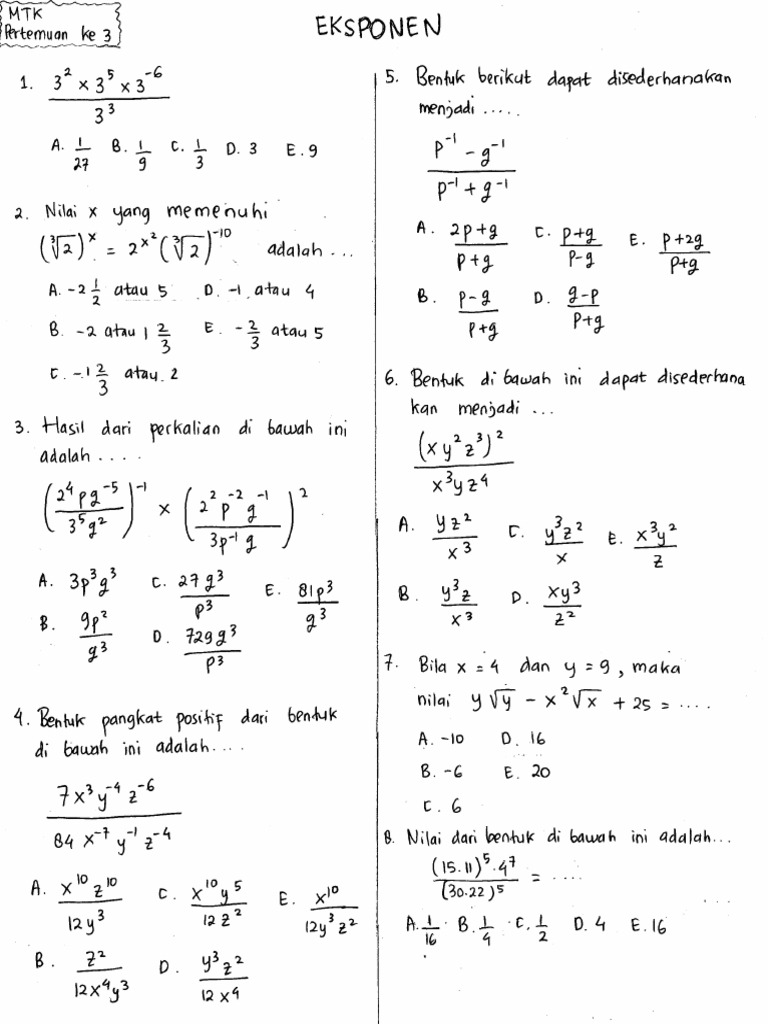 MTK
Pertemuan ke 3
EKSPONEN
1. (3² × 3⁵ × 3⁻⁶)/3³
A. 1/27 B. 1/9 C. 1/3 D. 3 E. 9
2. Nilai x yang memenuhi
(∛2)ˣ = 2^(x²) (∛2)⁻¹⁰ adalah ...
A. -2 1/2 atau 5 D. -1 atau 4
B. -2 atau 1 2/3 E. -2/3 atau 5
C. -1 2/3 atau 2
3. Hasil dari perkalian di bawah ini
adalah ....
((2⁴ p g⁻⁵)/(3⁵ g²))⁻¹ × ((2² p⁻² g⁻¹)/(3p⁻¹ g))²
A. 3p³g³ C. 27g³/p³ E. 81p³/g³
B. 9p²/g³ D. 729g³/p³
4. Bentuk pangkat positif dari bentuk
di bawah ini adalah....
(7x³ y⁻⁴ z⁻⁶)/(84 x⁻⁷ y⁻¹ z⁻⁴)
A. x¹⁰z¹⁰/12y³ C. x¹⁰y⁵/12z² E. x¹⁰/12y³z²
B. z²/12x⁴y³ D. y³z²/12x⁴
5. Bentuk berikut dapat disederhanakan
menjadi .....
(p⁻¹ - g⁻¹)/(p⁻¹ + g⁻¹)
A. (2p+g)/(p+g) C. (p+g)/(p-g) E. (p+2g)/(p+g)
B. (p-g)/(p+g) D. (g-p)/(p+g)
6. Bentuk di bawah ini dapat disederhana
kan menjadi ...
(xy²z³)²/(x³yz⁴)
A. yz²/x³ C. y³z²/x E. x³y²/z
B. y³z/x³ D. xy³/z²
7. Bila x = 4 dan y = 9, maka
nilai y√y - x²√x + 25 = ....
A. -10 D. 16
B. -6 E. 20
C. 6
8. Nilai dari bentuk di bawah ini adalah...
((15.11)⁵ . 4⁷)/(30.22)⁵ = ....
A. 1/16 B. 1/4 C. 1/2 D. 4 E. 16